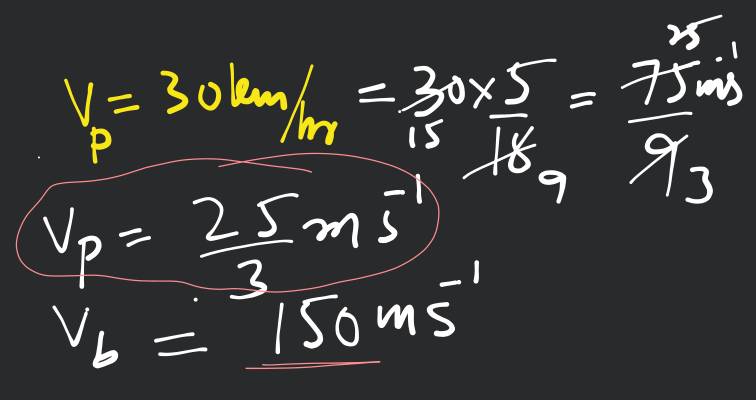 V_p = 30km/hr = 30×5/18 = 75/9 ms^-1
15 9 25 3
V_p = 25/3 ms^-1
V_b = 150 ms^-1